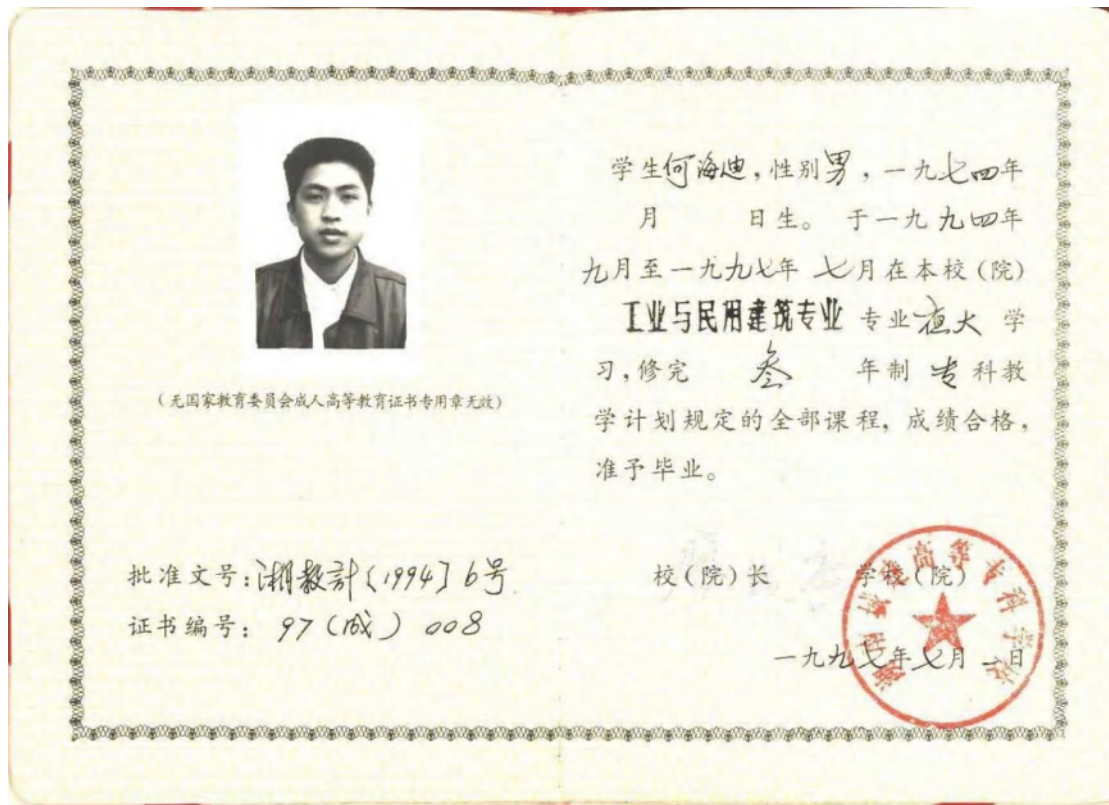 (无国家教育委员会成人高等教育证书专用章无效)
批准文号:湘教計〔1994〕6号
证书编号: 97(成)008
学生何海迪,性别男,一九七四年
月 日生。于一九九四年
九月至一九九七年七月在本校(院)
工业与民用建筑专业 专业夜大 学
习,修完 叁 年制 专 科教
学计划规定的全部课程,成绩合格,
准予毕业。
校(院)长 学校(院)
一九九七年七月 日
高等专科学校